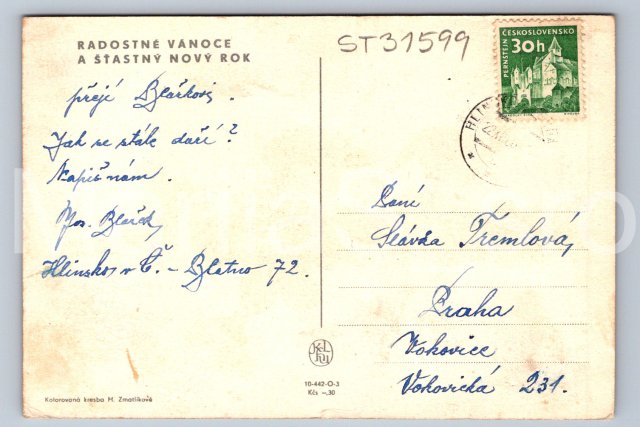 RADOSTNÉ VÁNOCE
A ŠŤASTNÝ NOVÝ ROK
přejí Blažkovi.
Jak se stále daří?
Napiš nám.
Jos. Blažek
Hlinsko v Č. - Blatno 72.
ST31599
PERNŠTEJN
ČESKOSLOVENSKO
30h
HLIN
Paní
Slávka Tremlová,
Praha
Vokovice
Vokovická 231.
10-442-O-3
Kčs -,30
Kolorovaná kresba M. Zmatlíkové